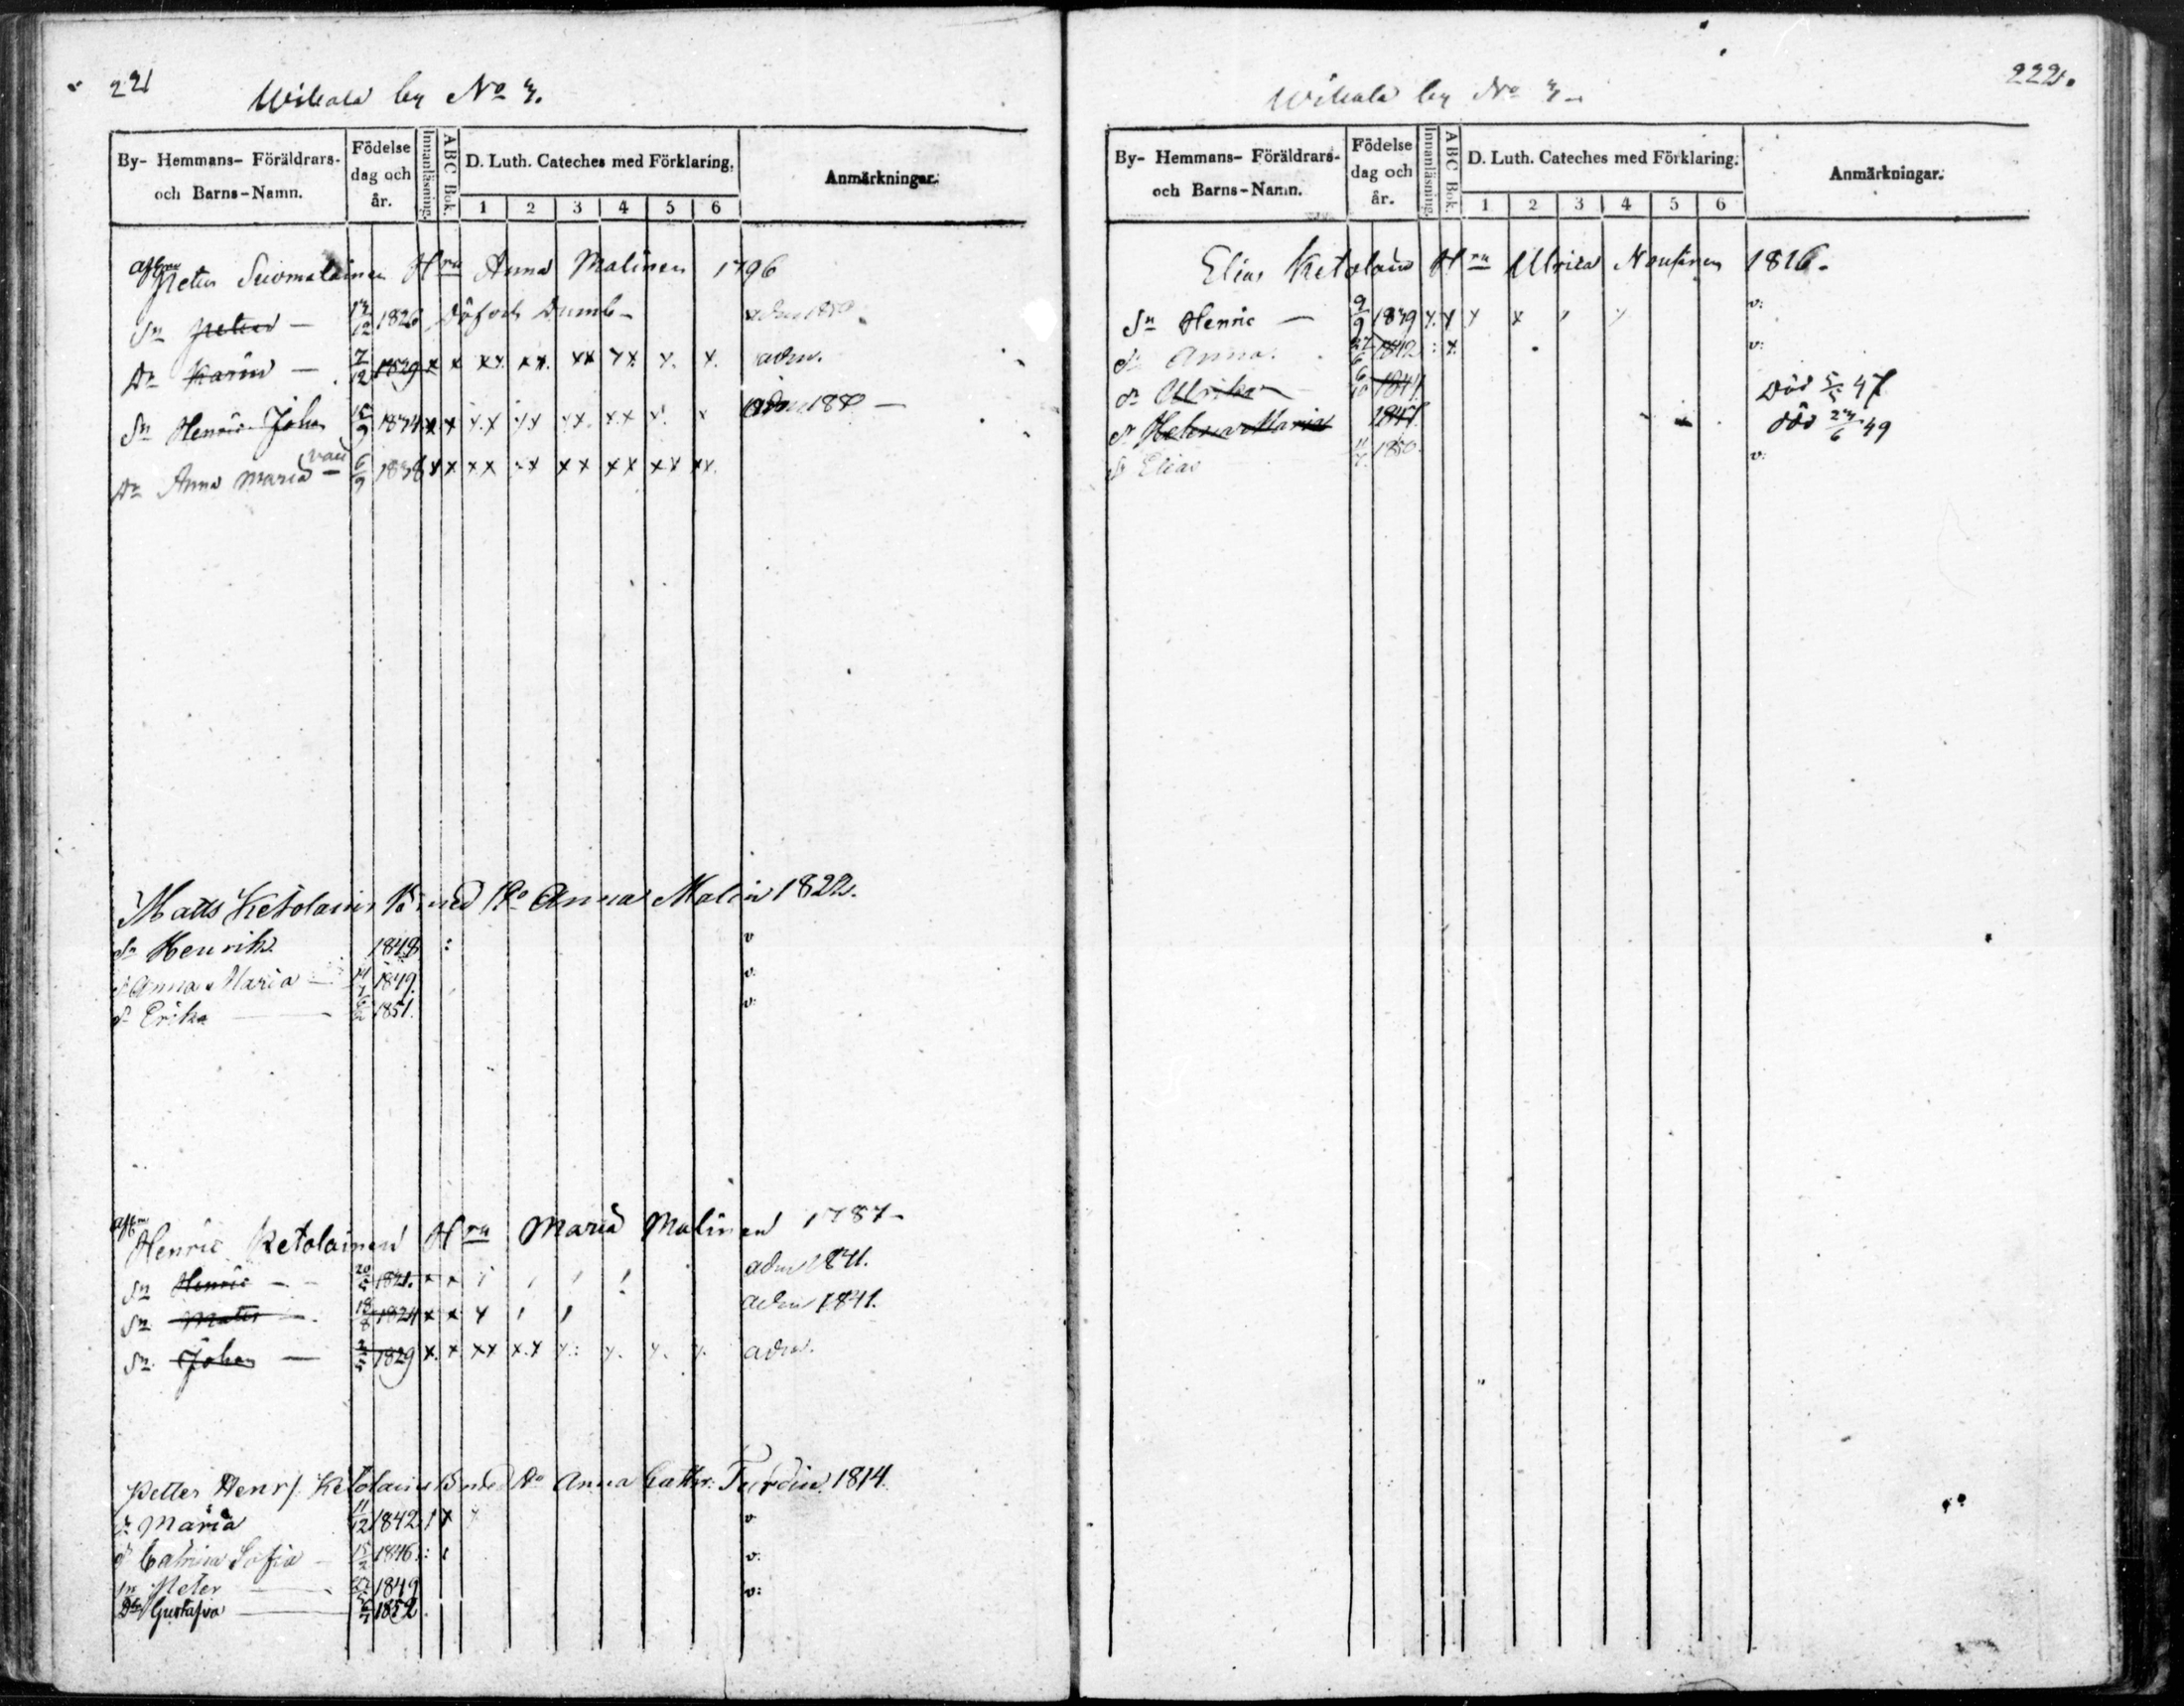 221
Wikala by No 7.
By- Hemmans- Föräldrars- och Barns-Namn.
Födelse dag och år.
Innanläsning.
ABC Bok.
D. Luth. Cateches med Förklaring.
1 2 3 4 5 6
Anmärkningar.
Petter Suomalainen Hru Anna Malinen 1796
Sn Petter — 12 1826 Döf och Dumb —
Dr Karin — 7/12 1829 x x xx xx. xx xx x. x. adm.
Sn Henric Johan 1834 x x x.x xx xx. x.x x. x
Dr Anna Maria — 6/9 1838 x x x x x x x x x x xx.
Matts Ketolain B. med Ho Anna Malin 1822.
Sn Henrik 1848 : v
d Anna Maria — 1849. v.
dr Erika — 1851. v.
Henric Ketolainen Hru Maria Malinen 1787 —
Sn Henric — 20/5 1821. x x adm 1841.
Sn Matts — 18/8 1824 x x x adm 1841.
Sn Johan — 1829 x. x xx x.x x: x. x. x. adm.
Petter Henr. Ketolain B med Ho Anna Cathr: Turdin 1814.
dr Maria 11/12 1842 x v
dr Catrina Sofia — 15/2 1846 : v.
Sn Peter — 1849 v:
Dtr Gustafva — 1852
222.
Wikala by No 7 —
By- Hemmans- Föräldrars- och Barns-Namn.
Födelse dag och år.
Innanläsning.
ABC Bok.
D. Luth. Cateches med Förklaring.
1 2 3 4 5 6
Anmärkningar.
Elias Ketolain Hru Ulrica Nousinen 1816.
Sn Henric — 9/9 1839 x. x x x v:
dr Anna. 27/6 1842 : x. v:
dr Ulrika 6/10 1844. Död 5/5 47
dr Helena Maria 1847. död 24/6 49
Sn Elias 1850. v: